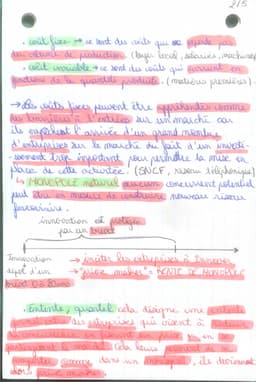 2/5
. coût fixes → ce sont des coûts qui ne dépende pas
du volume de production. (loyer local, salaires, machines)
. coût variable → ce sont des coûts qui varient en
fonction de la quantité produite. (matières premières)
→ les coûts fixes peuvent être appréhendés comme
des barrières à l'entrée sur un marché car
ils empêchent l'arrivée d'un grand nombre
d'entreprises sur le marché du fait d'un investi-
-ssement trop important pour permettre la mise en
place de cette activitée. (SNCF, réseau téléphonique)
↳ MONOPOLE naturel aucun concurrent potentiel
peut être en mesure de construire nouveau réseau
ferroviaire.
innovation est protégée
par un brevet
Innovation
dépot d'un
brevet 0 à 20 ans
→ inciter les entreprises à innover
→ "price maker" = RENTE DE MONOPOLE
. Entente, quantité cela désigne une entente
entreprises qui visent à réduire
la concurrence en fixant un prix en se
partageant le marché
comme dans un monopole, ils deviennent
alors price maker.